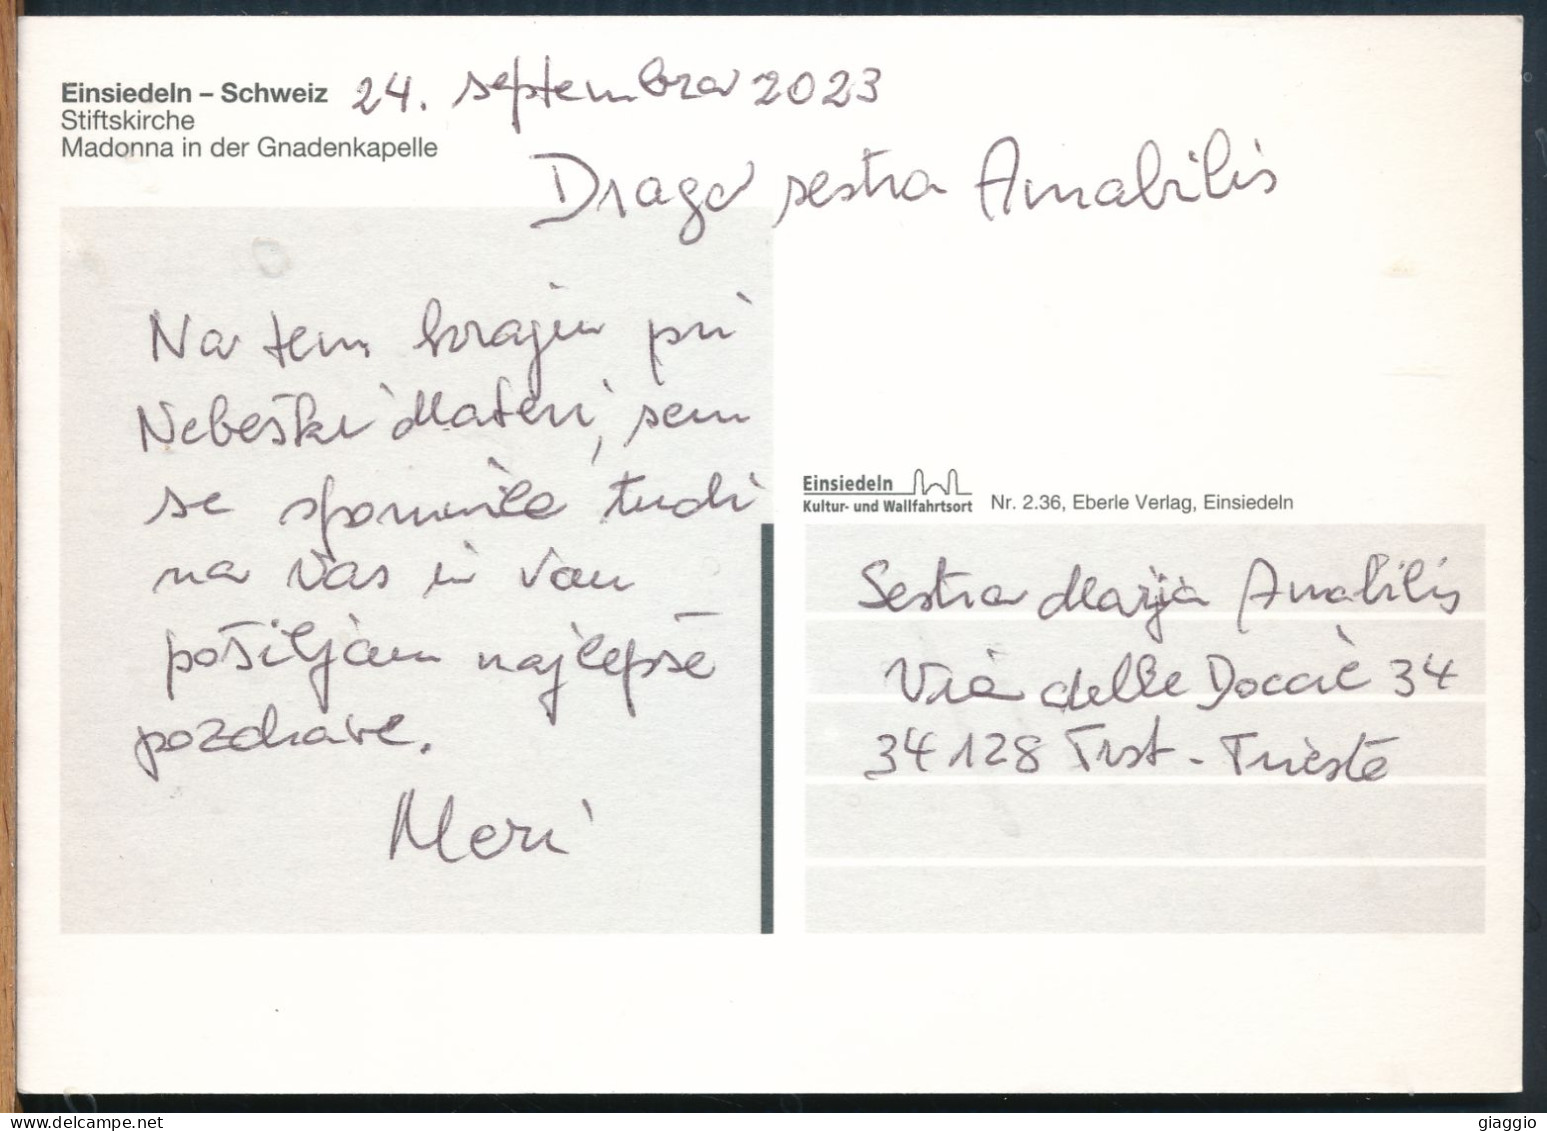 Einsiedeln – Schweiz 24. septembra 2023
Stiftskirche
Madonna in der Gnadenkapelle
Draga sestra Amabilis
Na tem kraju pri
Nebeški Materi, sem
se spomnila tudi
na Vas in Vam
pošiljam najlepše
pozdrave.
Meri
Einsiedeln
Kultur- und Wallfahrtsort Nr. 2.36, Eberle Verlag, Einsiedeln
Sestra Marija Amabilis
Via delle Doccie 34
34128 Trst - Trieste
www.delcampe.net
giaggio